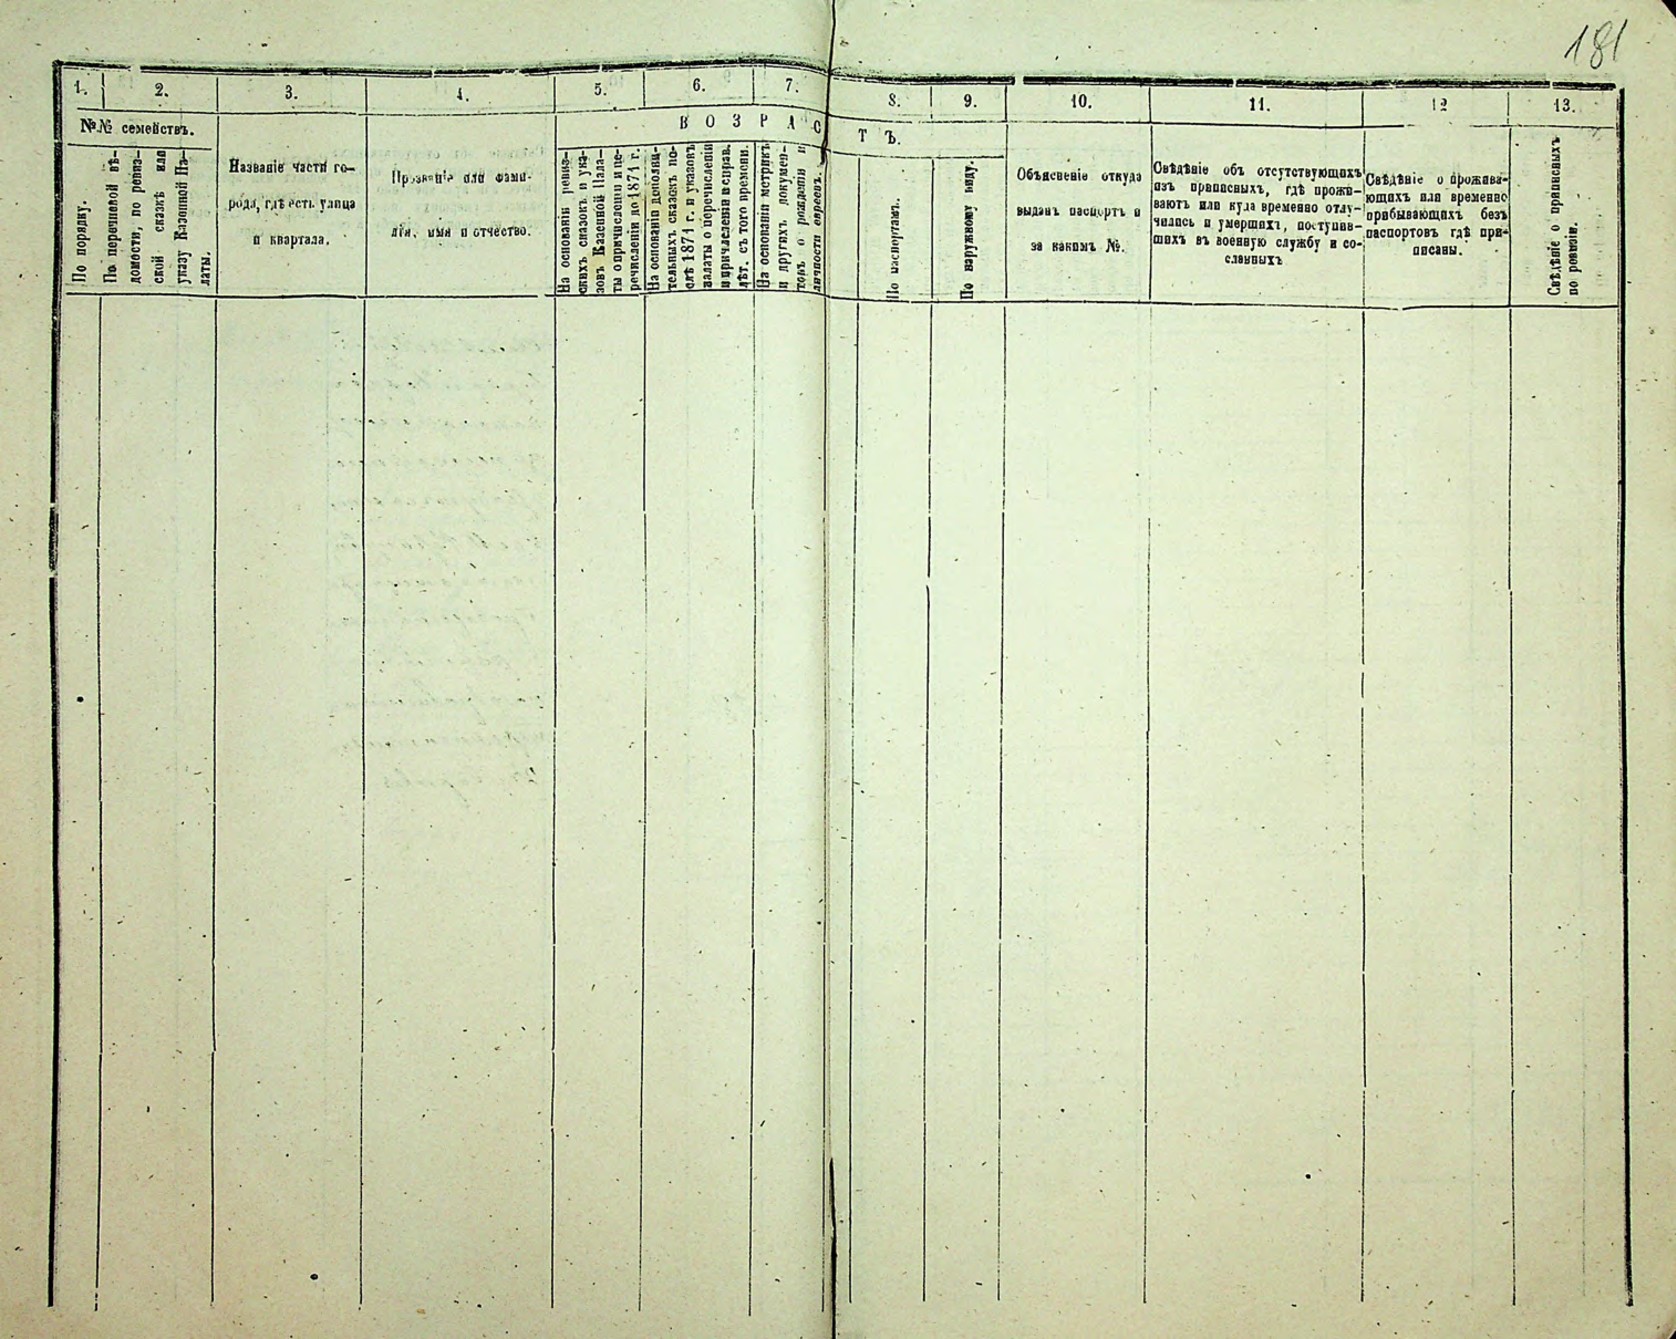 181
1.
2.
3.
4.
5.
6.
7.
8.
9.
10.
11.
12
13.
№№ семействъ.
ВОЗРАСТЪ.
По порядку.
По перечневой вѣ-
домости, по ревиз-
ской сказкѣ или
указу Казенной Па-
латы.
Названіе части го-
рода, гдѣ есть улица
и квартала.
Прозваніе или фами-
лія, имя и отчество.
На основаніи ревиз-
скихъ сказокъ и ука-
зовъ Казенной Пала-
ты о причисленіи и пе-
речисленіи до 1874 г.
На основаніи дополни-
тельныхъ сказокъ по-
слѣ 1874 г. и указовъ
палаты о перечисленіи
и причисленіи и справ.
лѣт. съ того времени.
На основаніи метрикъ
и другихъ докумен-
товъ о рожденіи и
личности евреевъ.
По паспортамъ.
По наружному виду.
Объясненіе откуда
выданъ паспортъ и
за какимъ №.
Свѣдѣніе объ отсутствующихъ
изъ приписныхъ, гдѣ прожи-
ваютъ или куда временно отлу-
чились и умершихъ, поступив-
шихъ въ военную службу и со-
сланныхъ
Свѣдѣніе о прожива-
ющихъ или временно
прибывающихъ безъ
паспортовъ гдѣ при-
писаны.
Свѣдѣніе о приписныхъ
по ревизіи.